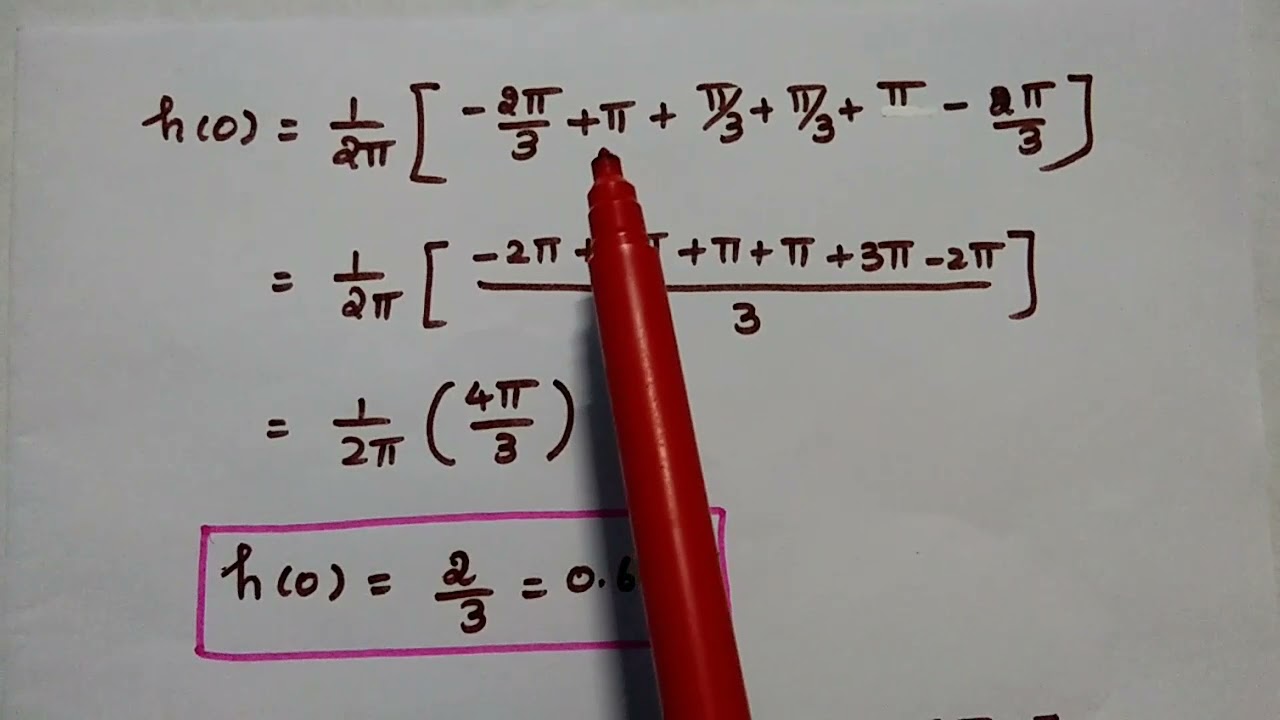 h(0) = 1/2π [ -2π/3 + π + π/3 + π/3 + π - 2π/3 ]
= 1/2π [ (-2π + π + π + π + 3π - 2π)/3 ]
= 1/2π ( 4π/3 )
h(0) = 2/3 = 0.6